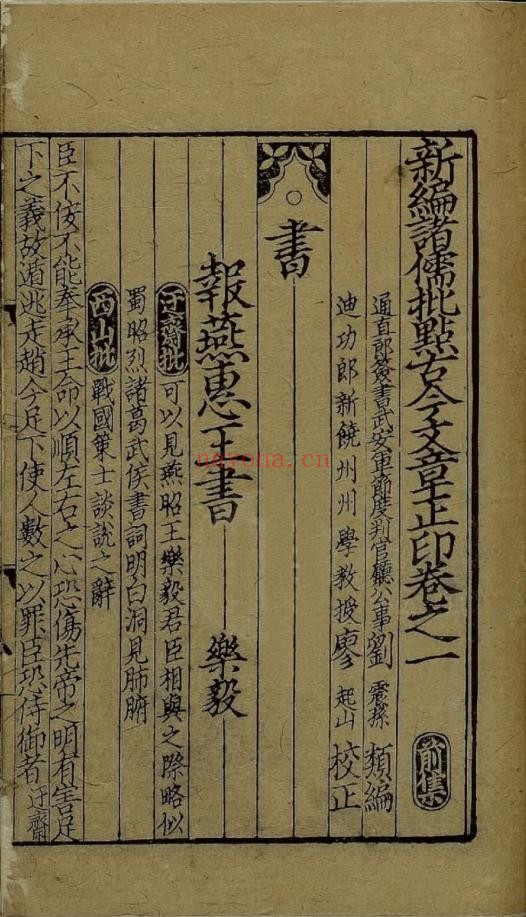 新編諸儒批點古今文章正印卷之一 前集
通直郎簽書武安軍節度判官廳公事劉 震孫 類編
迪功郎新饒州州學教授廖 起山 校正
書
報燕惠王書 樂毅
迂齋批 可以見燕昭王樂毅君臣相與之際略似
蜀昭烈諸葛武侯書詞明白洞見肺腑
西山批 戰國策士談說之辭
臣不佞不能奉承王命以順左右之心恐傷先帝之明有害足
下之義故遁逃走趙今足下使人數之以罪臣恐侍御者 迂齋
nayona.cn